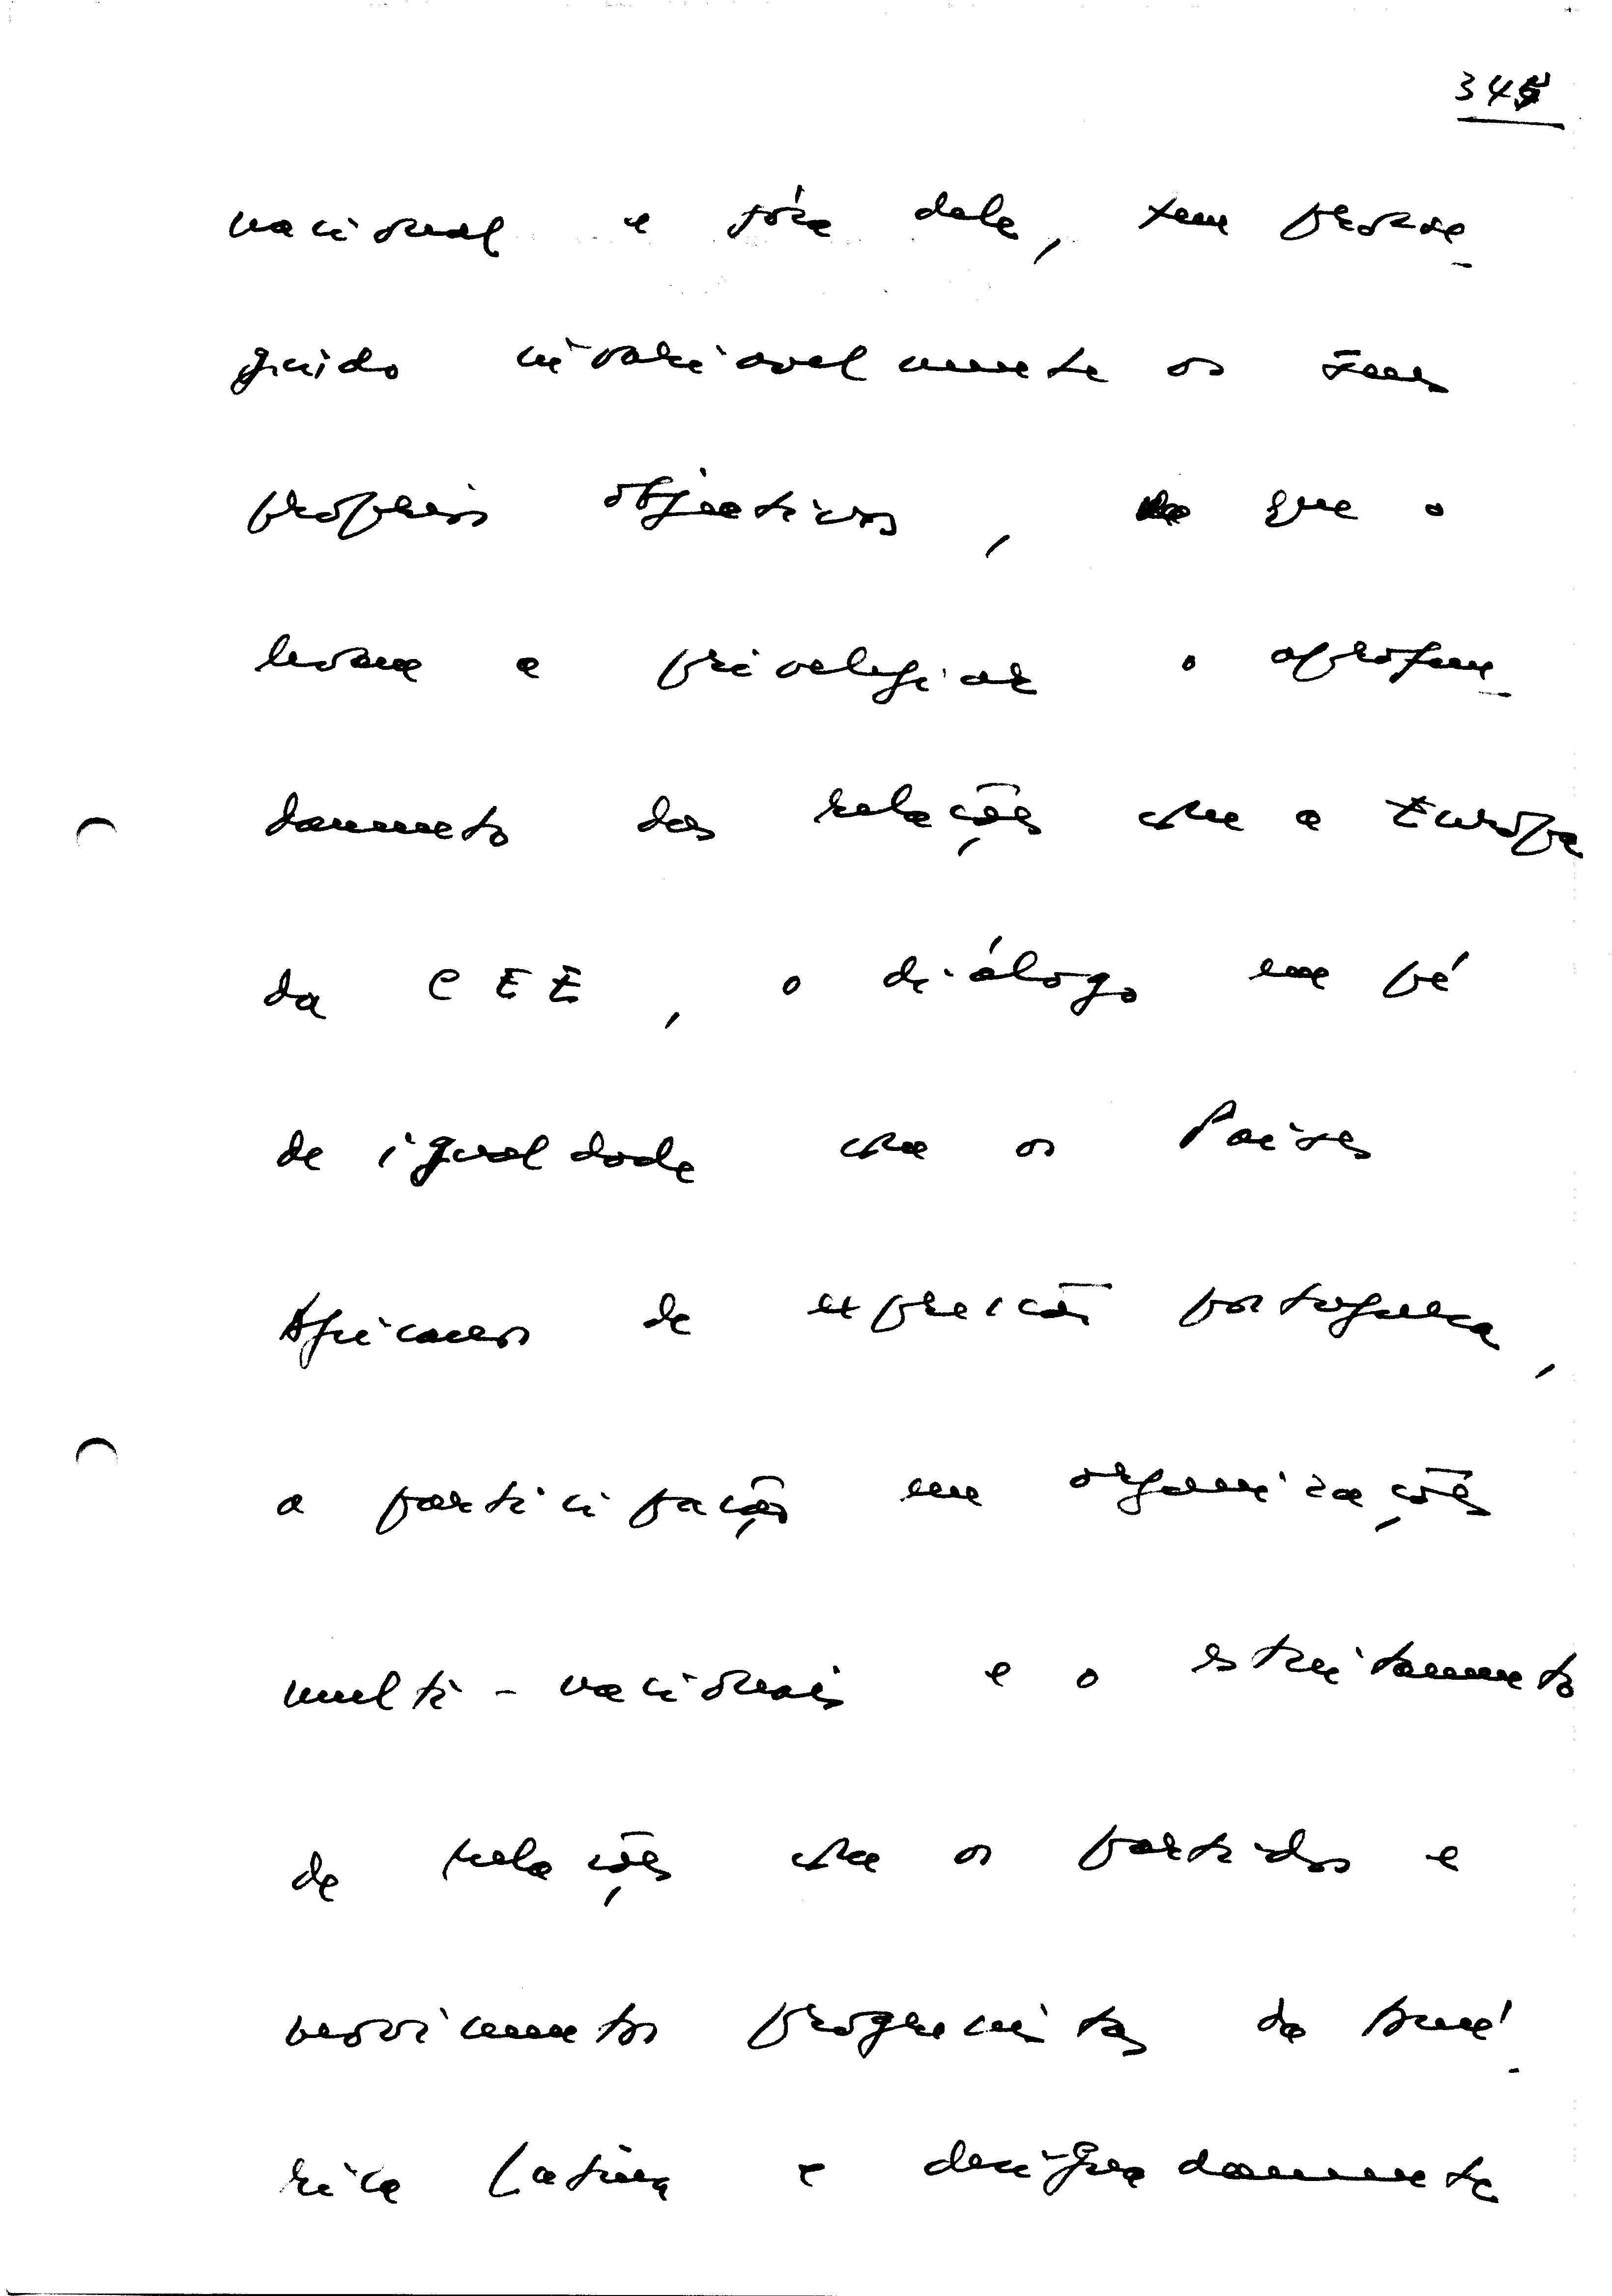 345
nacional e fóra dele, tem prosse-
guido invariavelmente os seus
proprios objectivos, que o
levam a privelegiar o aprofun-
damento das relações com a Europa
da CEE, o diálogo em pé
de igualdade com os Paises
Africanos de expressão portuguesa,
a participação em organizações
multi-nacionais e o estreitamento
de relações com os partidos e
movimentos progressistas da Amé-
rica Latina e designadamente